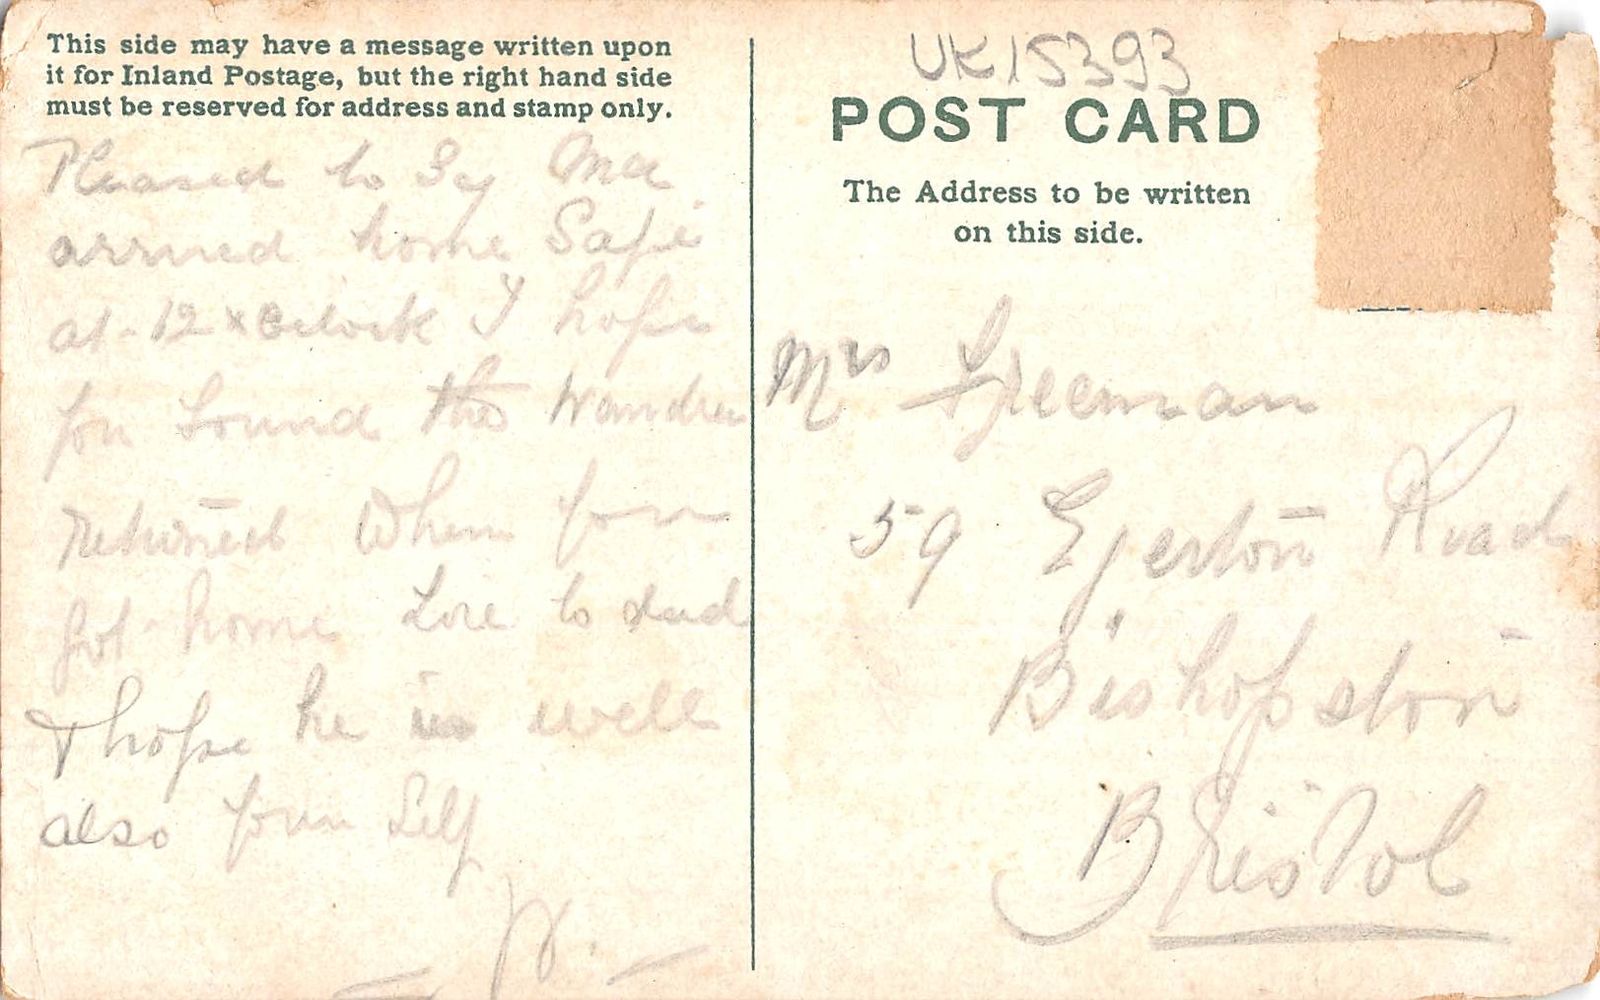 This side may have a message written upon
it for Inland Postage, but the right hand side
must be reserved for address and stamp only.
Pleased to Sy Ma
arrived home Safe
at 12 x Oclock I hope
you found the Wandrer
returned When you
got home Love to dad
& hope he is well
also your Self
UK15393
POST CARD
The Address to be written
on this side.
Mrs Freeman
59 Egerton Road
Bishopston
Bristol